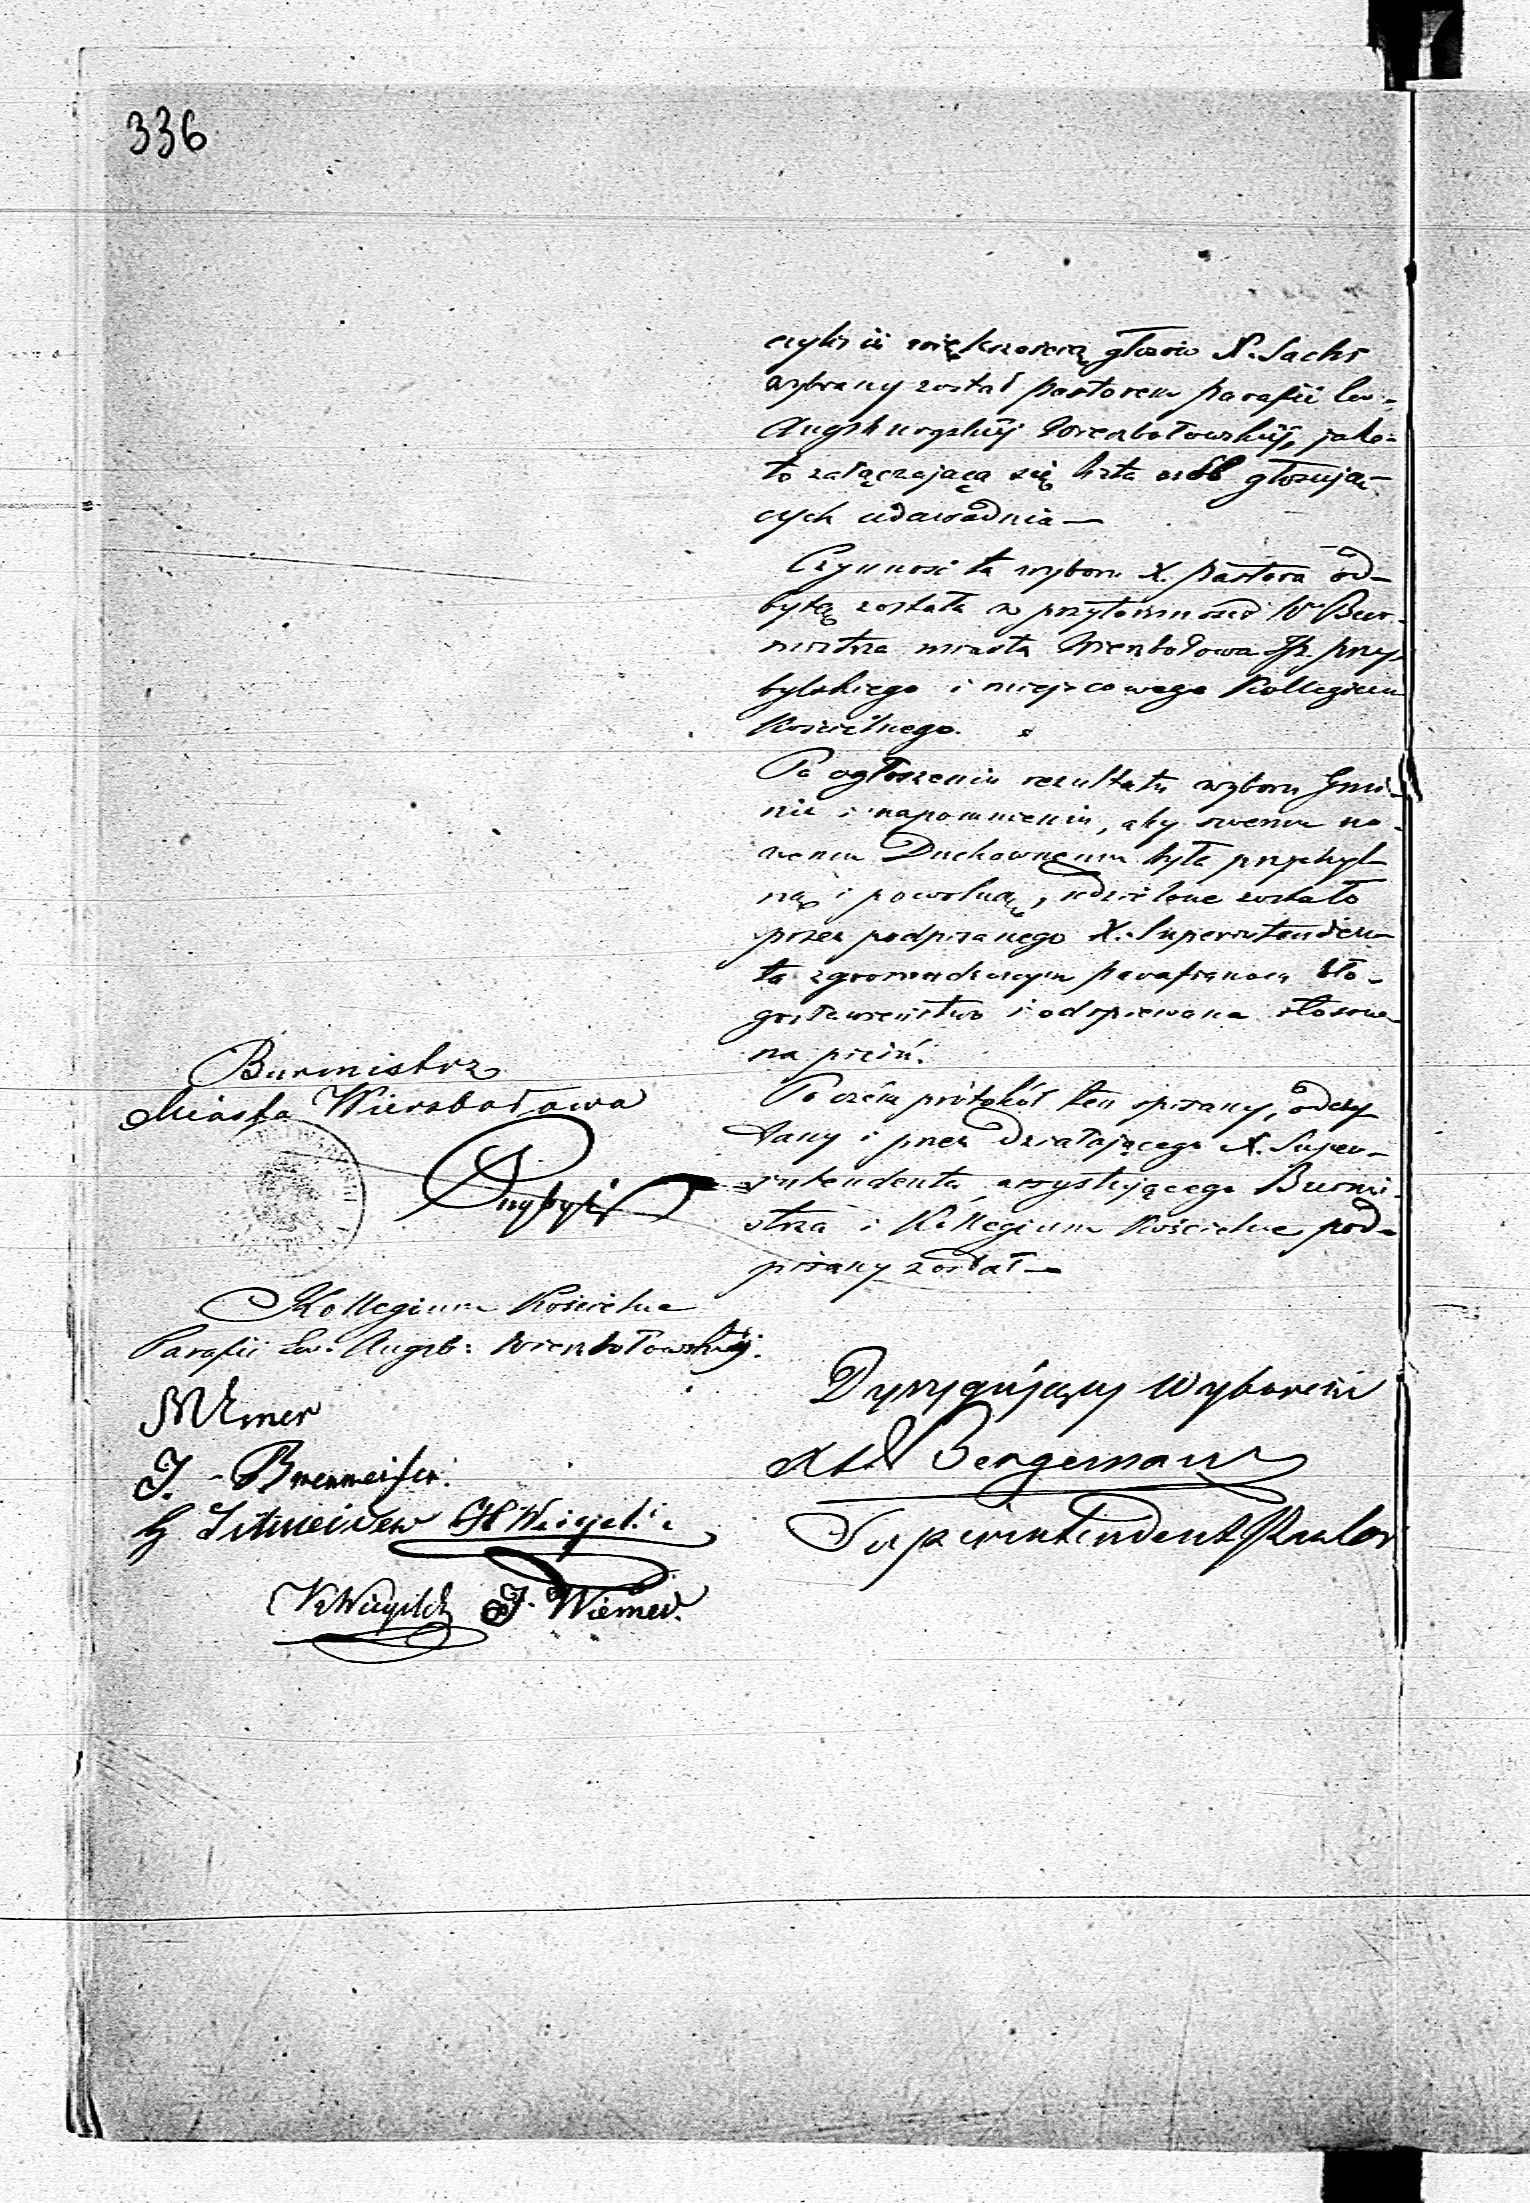 336
czyli iż większością głosów X. Sachs
wybrany został pastorem parafii Ew:
Augsburgskiéj Wierzbołowskiéj, jako
to załączającą się lista osób głosują-
cych udawadnia —
Czynność ta wyboru X. pastora od-
bytą została w przytomności W Bur-
mistrza miasta Wierzbołowa Przy-
bylskiego i miejscowego Kollegium
Kościelnego.
Po ogłoszeniu rezultatu wyboru Gmi-
nie i napomnieniu, aby swemu no-
wemu Duchownemu była przychyl
ną i powolną, udzielone zostało
przez podpisanego X. Superintenden-
ta zgromadzonym parafianom bło-
gosławieństwo i odspiewana stosow-
na pieśń.
Po czém protokół ten spisany, odczy
tany i przez działającego X. Super-
intendenta, assystującego Burmi-
strza i Kollegium Kościelne pod-
pisany został —
Burmistrz
Miasta Wierzbołowa
Przybyl
Kollegium Kościelne
Parafii Ew: Augsb: Wierzbołowskiéj.
J.
G H Weigel
Weigel J. Wiemer.
Dyrygujący Wyborem
Bergemann
Superintendent Pastor